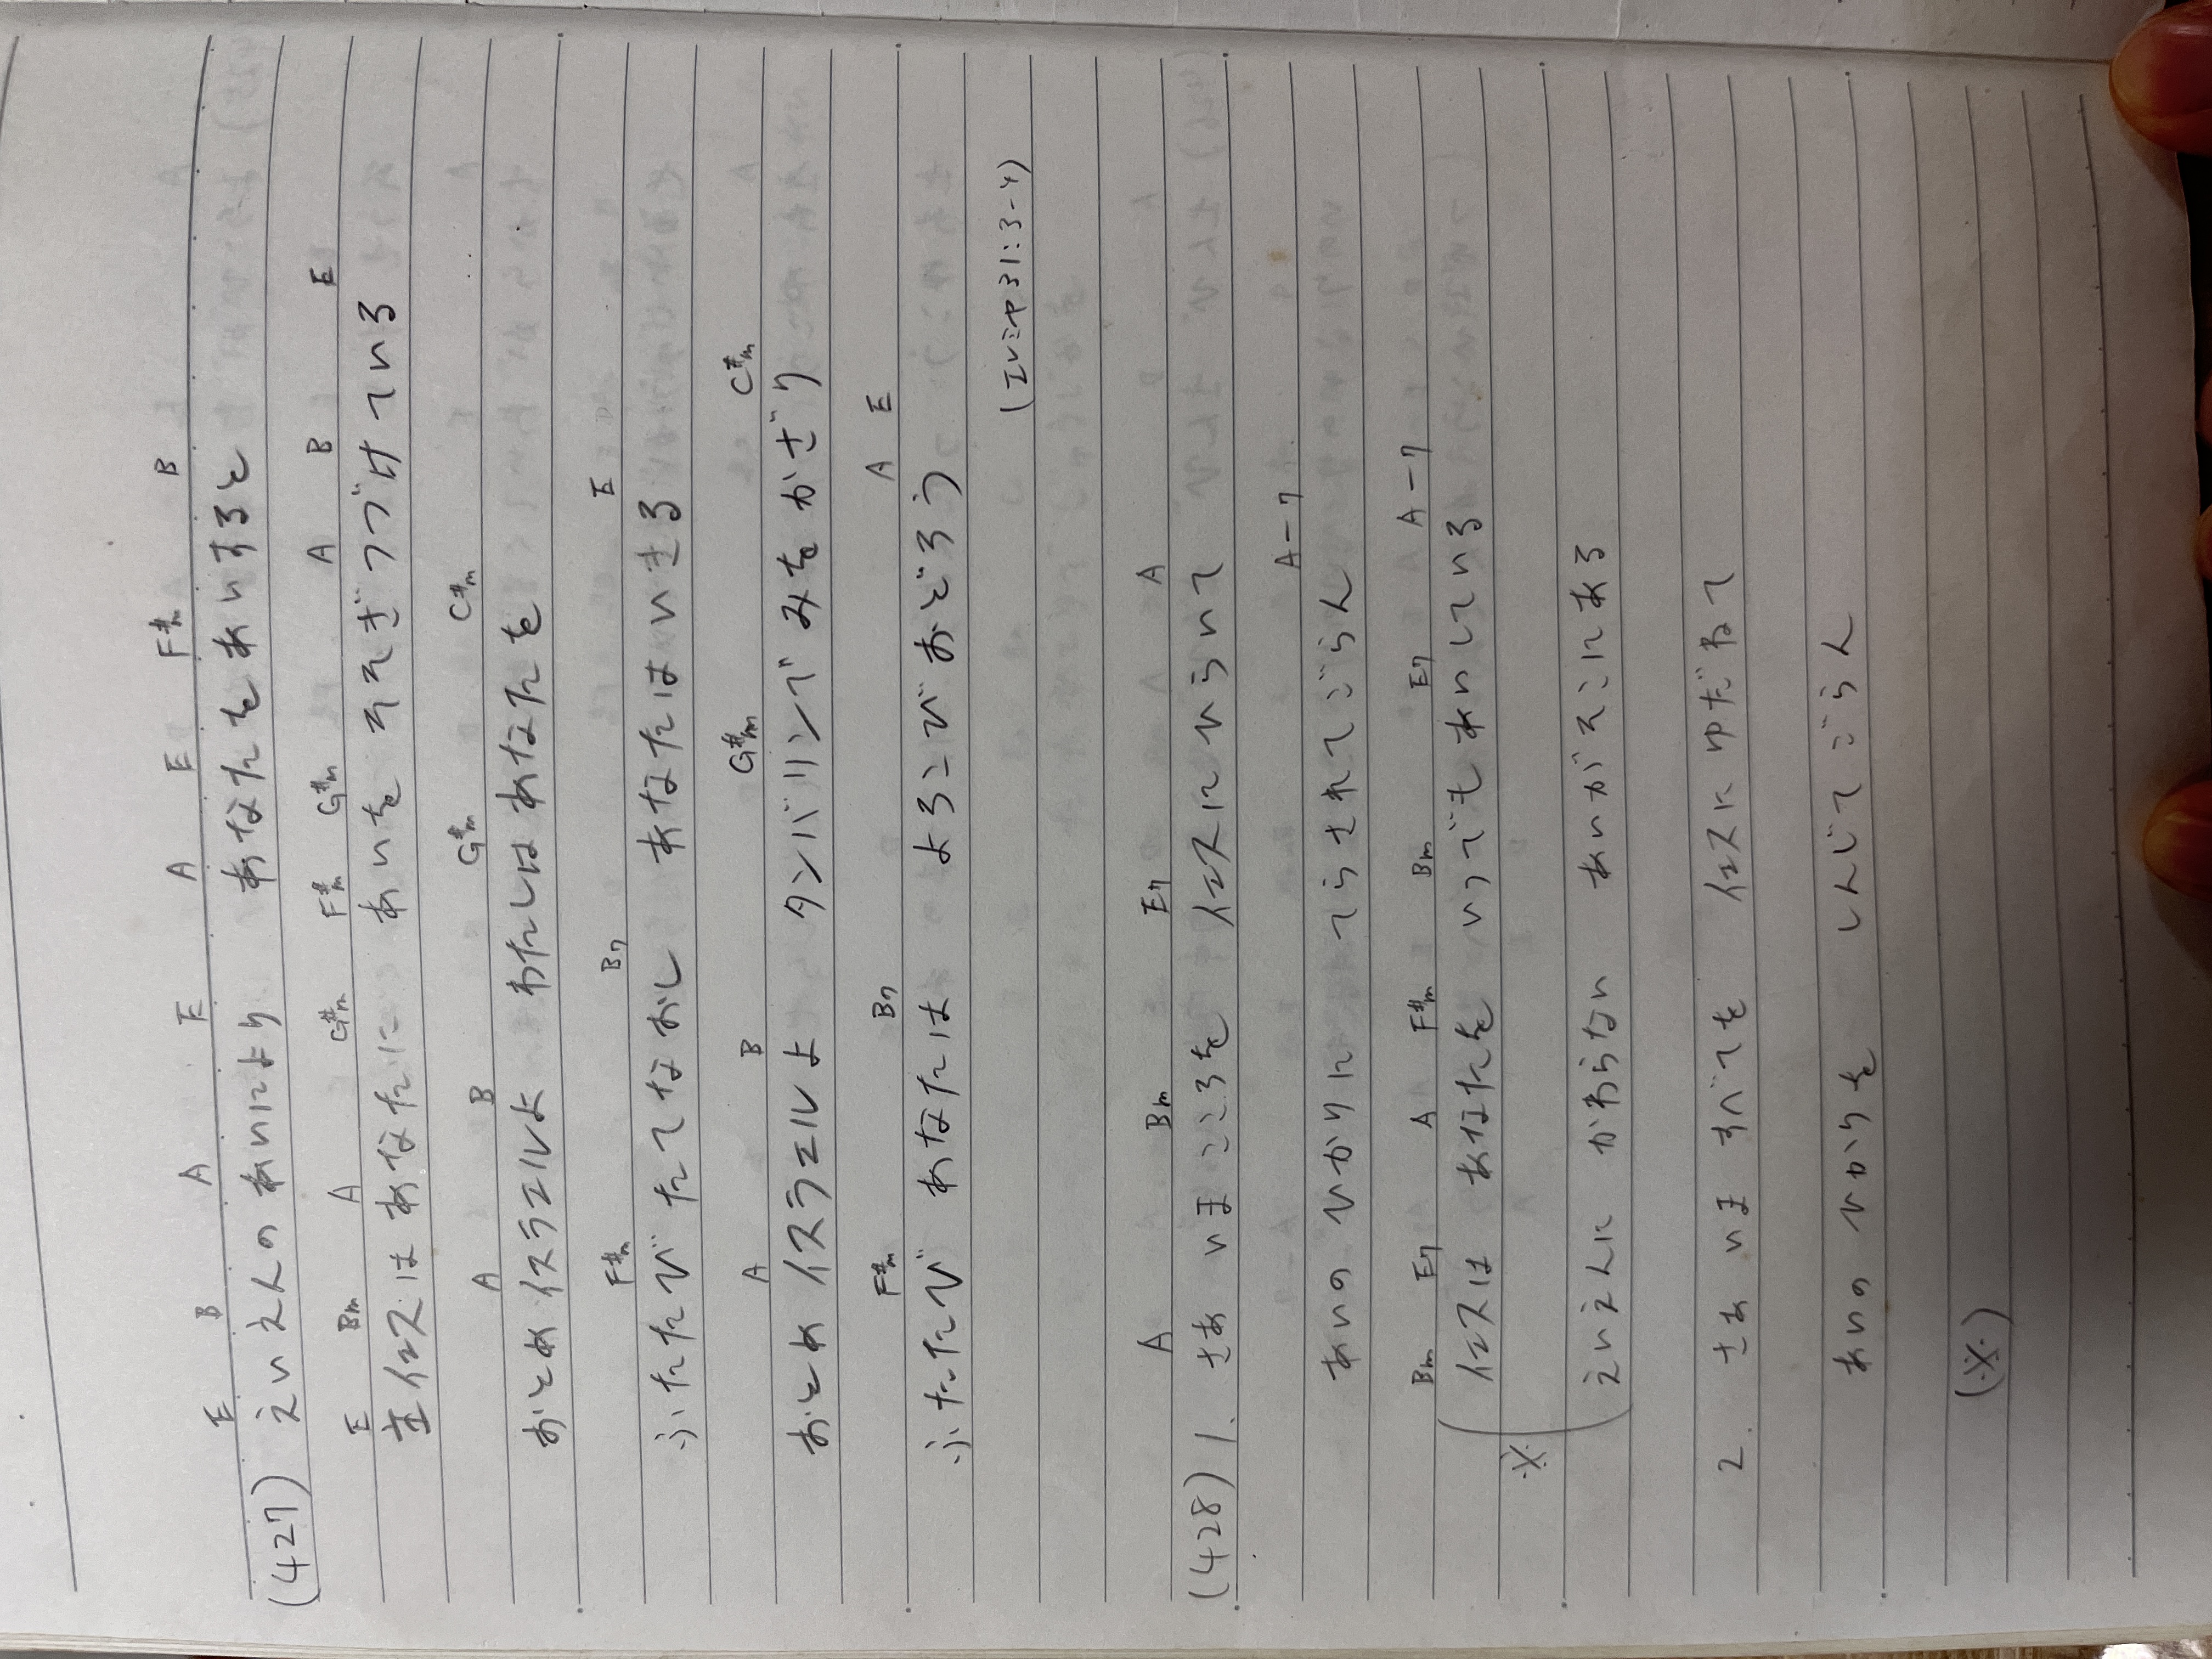 E B A E A E F#m B
(427) えいえんの あいにより あなたをあいすると
E Bm A G#m F#m G#m A B E
主イエスは あなたに あいを そそぎつづけている
A B G#m C#m
おとめ イスラエルよ わたしは あなたを
F#m B7 E
ふたたび たてなおし あなたは いきる
A B G#m C#m
おとめ イスラエルよ タンバリンで みをかざり
F#m B7 A E
ふたたび あなたは よろこびおどろう
(エレミヤ31:3-4)
A Bm E7 A
(428) 1. さあ いま こころを イエスに ひらいて
A-7
あいの ひかりに てらされて ごらん
Bm E7 A F#m Bm E7 A-7
イエスは あなたを いつでも あいしている
※
えいえんに かわらない あいが そこにある
2. さあ いま すべてを イエスに ゆだねて
あいの ひかりを しんじて ごらん
(※)